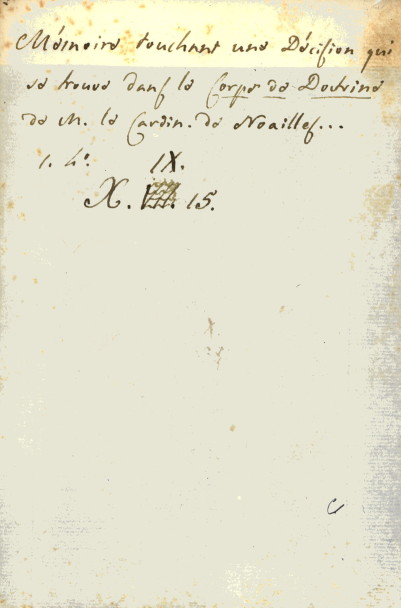 Mémoire touchant une Décision qui
se trouve dans le Corps de Doctrine
de M. le Cardin. de Noailles...
1. h.
IX.
X. 15.